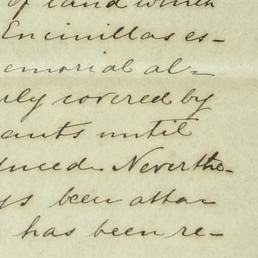 of land which
Encinillas es-
emorial al-
rly covered by
ants until
uced. Neverthe-
ys been atta
has been re-